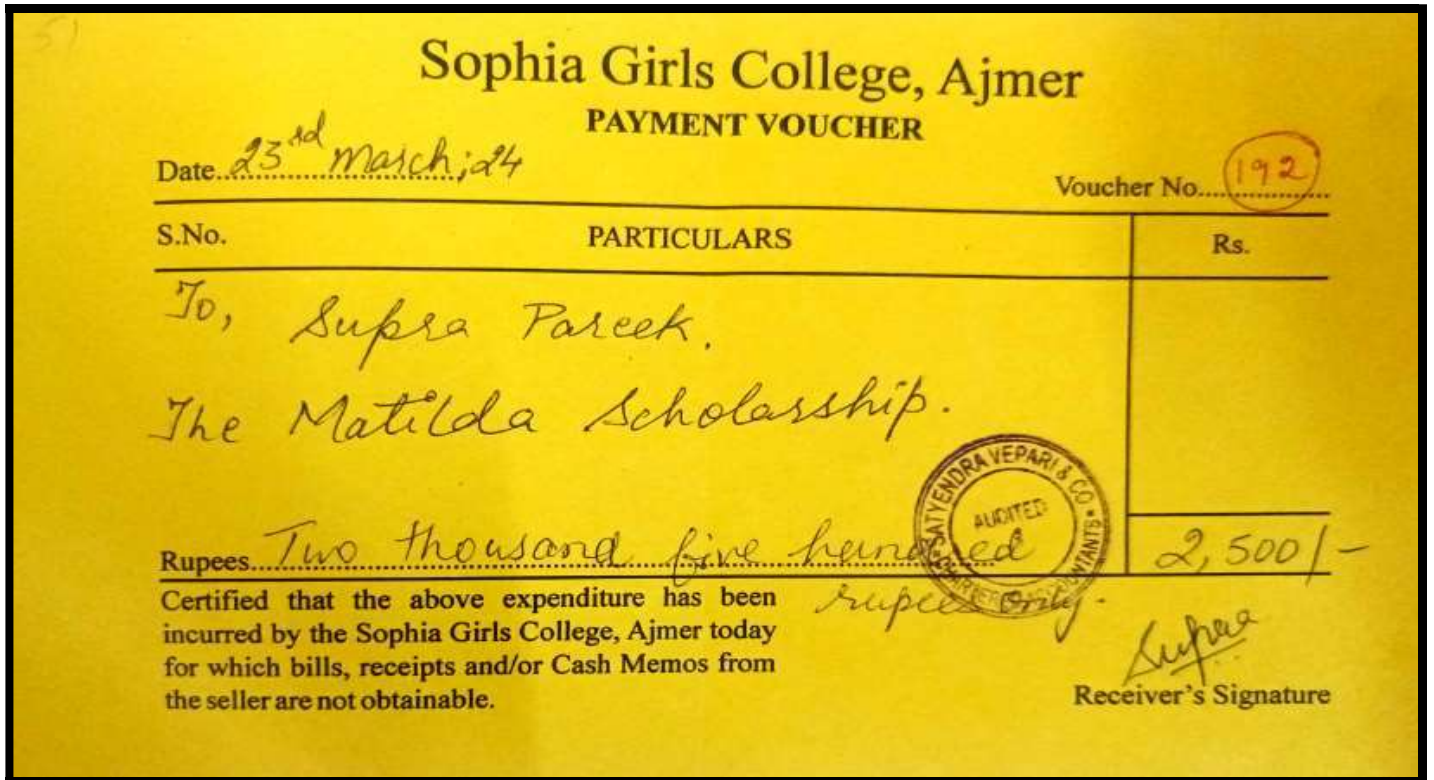 51
Sophia Girls College, Ajmer
PAYMENT VOUCHER
Date 23rd March; 24
Voucher No. 192
S.No. PARTICULARS Rs.
To, Supra Pareek.
The Matilda Scholarship.
SATYENDRA VEPARI & CO
AUDITED
CHARTERED ACCOUNTANTS
Rupees Two thousand five hundred 2,500/-
rupees only.
Certified that the above expenditure has been
incurred by the Sophia Girls College, Ajmer today
for which bills, receipts and/or Cash Memos from
the seller are not obtainable.
Supra
Receiver's Signature